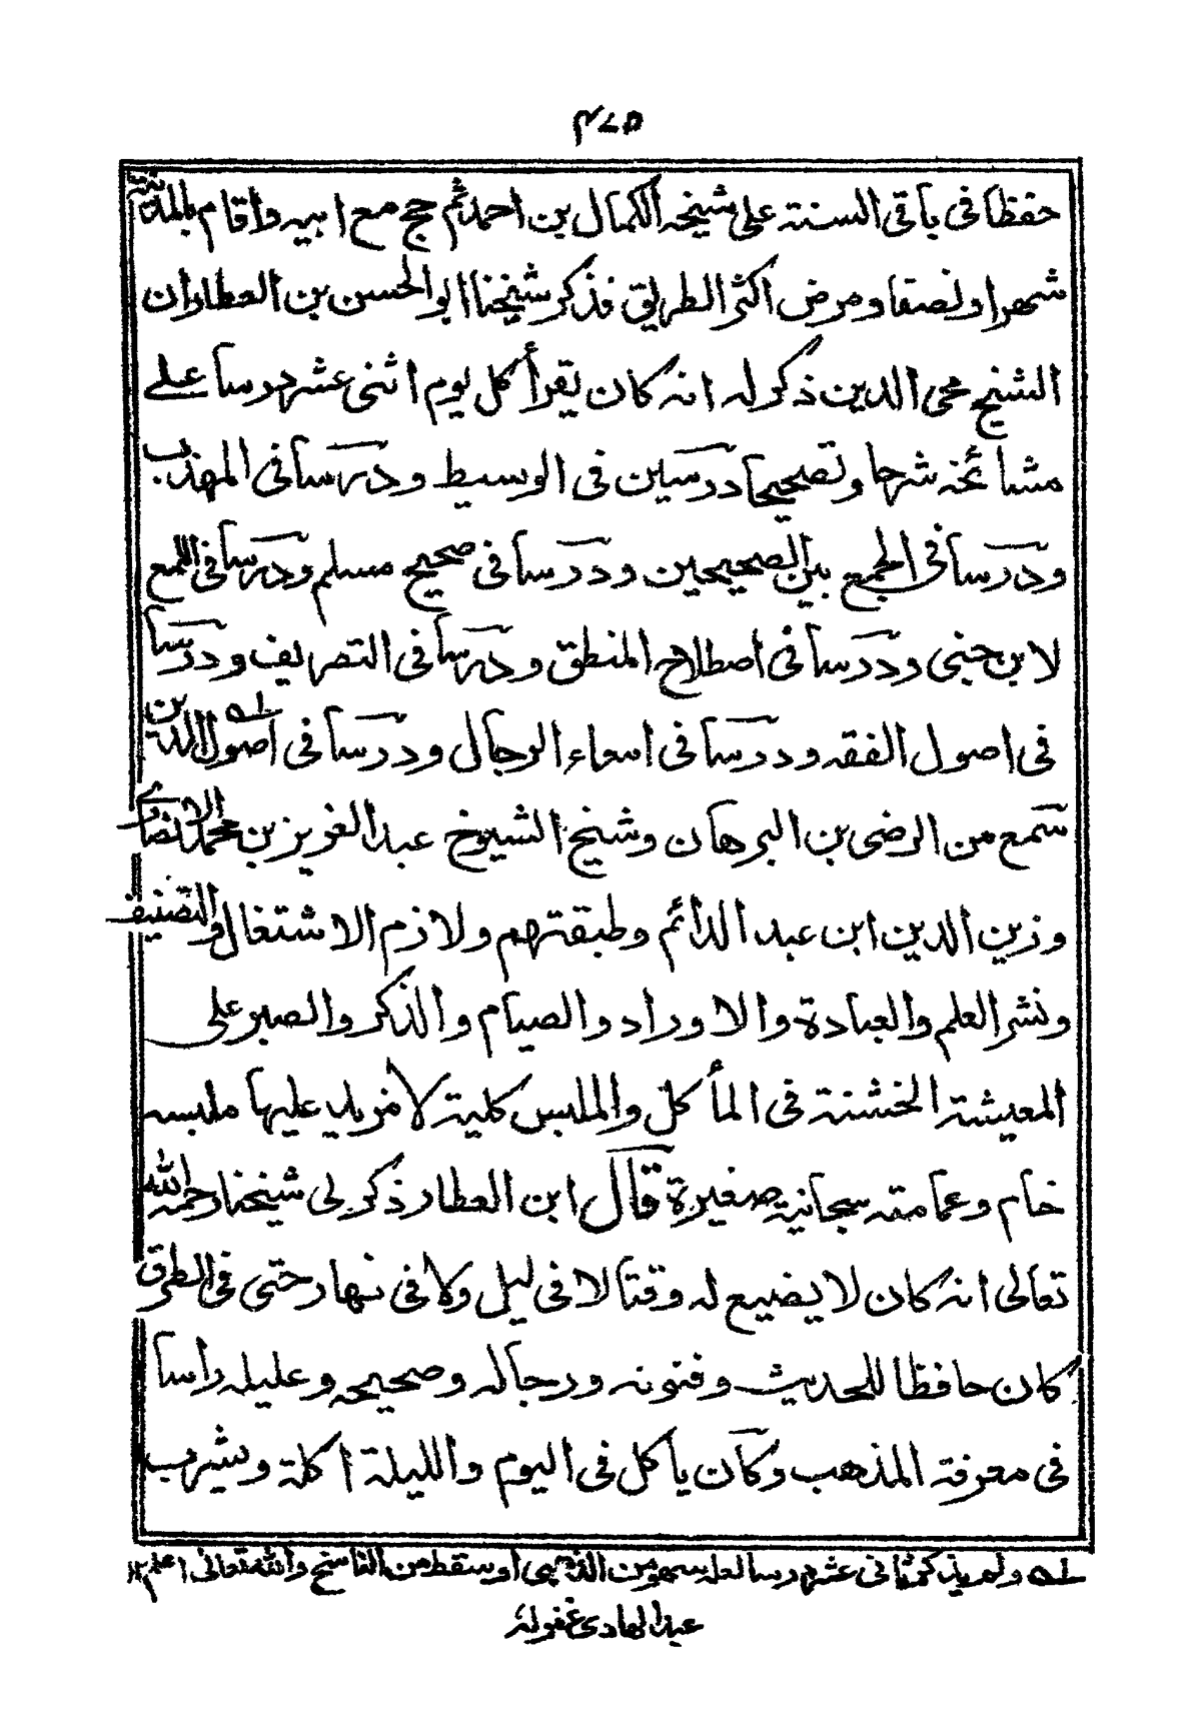 ٤٧٥
حفظا فى باقى السنة على شيخه الكمال بن احمد ثم حج مع ابيه واقام بالمدينة
شهرا ونصفا ومرض اكثر الطريق فذكر شيخنا ابو الحسن بن العطار ان
الشيخ محى الدين ذكر له انه كان يقرأ كل يوم اثنى عشر درسا على
مشائخه شرحا وتصحيحا درسين فى الوسيط ودرسا فى المهذب
ودرسا فى الجمع بين الصحيحين ودرسا فى صحيح مسلم ودرسا فى اللمع
لابن جنى ودرسا فى اصطلاح المنطق ودرسا فى التصريف ودرسا
فى اصول الفقه ودرسا فى اسماء الرجال ودرسا فى اصول الدين له
سمع من الرضى بن البرهان وشيخ الشيوخ عبد العزيز بن محمد الانصارى
وزين الدين ابن عبد الدائم وطبقتهم ولازم الاشتغال والتصنيف
ونشر العلم والعبادة والاوراد والصيام والذكر والصبر على
المعيشة الخشنة فى المأكل والملبس كلية لا مزيد عليها ملبسه
خام وعمامته سبحانية صغيرة قال ابن العطار ذكر لى شيخنا رحمه الله
تعالى انه كان لا يضيع له وقتا لا فى ليل ولا فى نهار حتى فى الطرق
كان حافظا للحديث وفنونه ورجاله وصحيحه وعليله رأسا
فى معرفة المذهب وكان يأكل فى اليوم والليلة اكلة ويشرب
له ولم يذكر ثانى عشر درسا لعله سهو من الذهبى او سقط من الناسخ والله تعالى اعلم ١٢
عبد الهادى غفر له